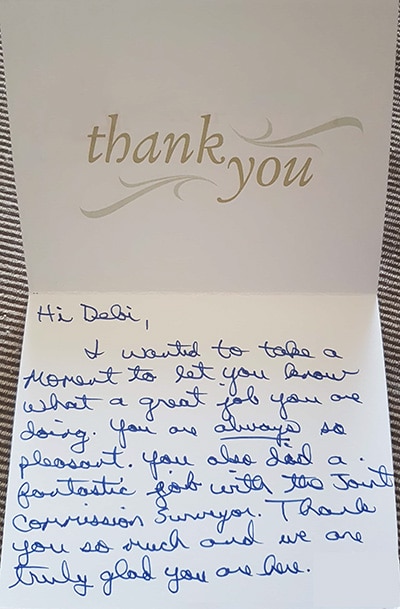 thank
you
Hi Debi,
I wanted to take a
moment to let you know
what a great job you are
doing. You are always so
pleasant. You also did a
fantastic job with the Joint
Commission Surveyor. Thank
you so much and we are
truly glad you are here.